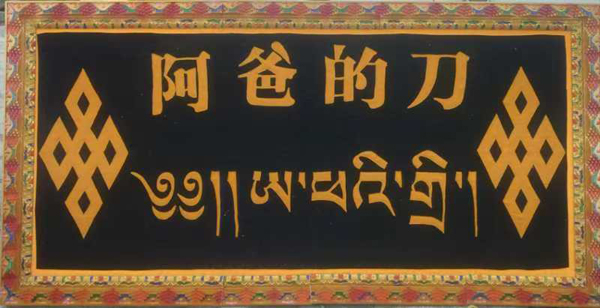 阿爸的刀
༄༅།།ཨ་ཕའི་གྲི།